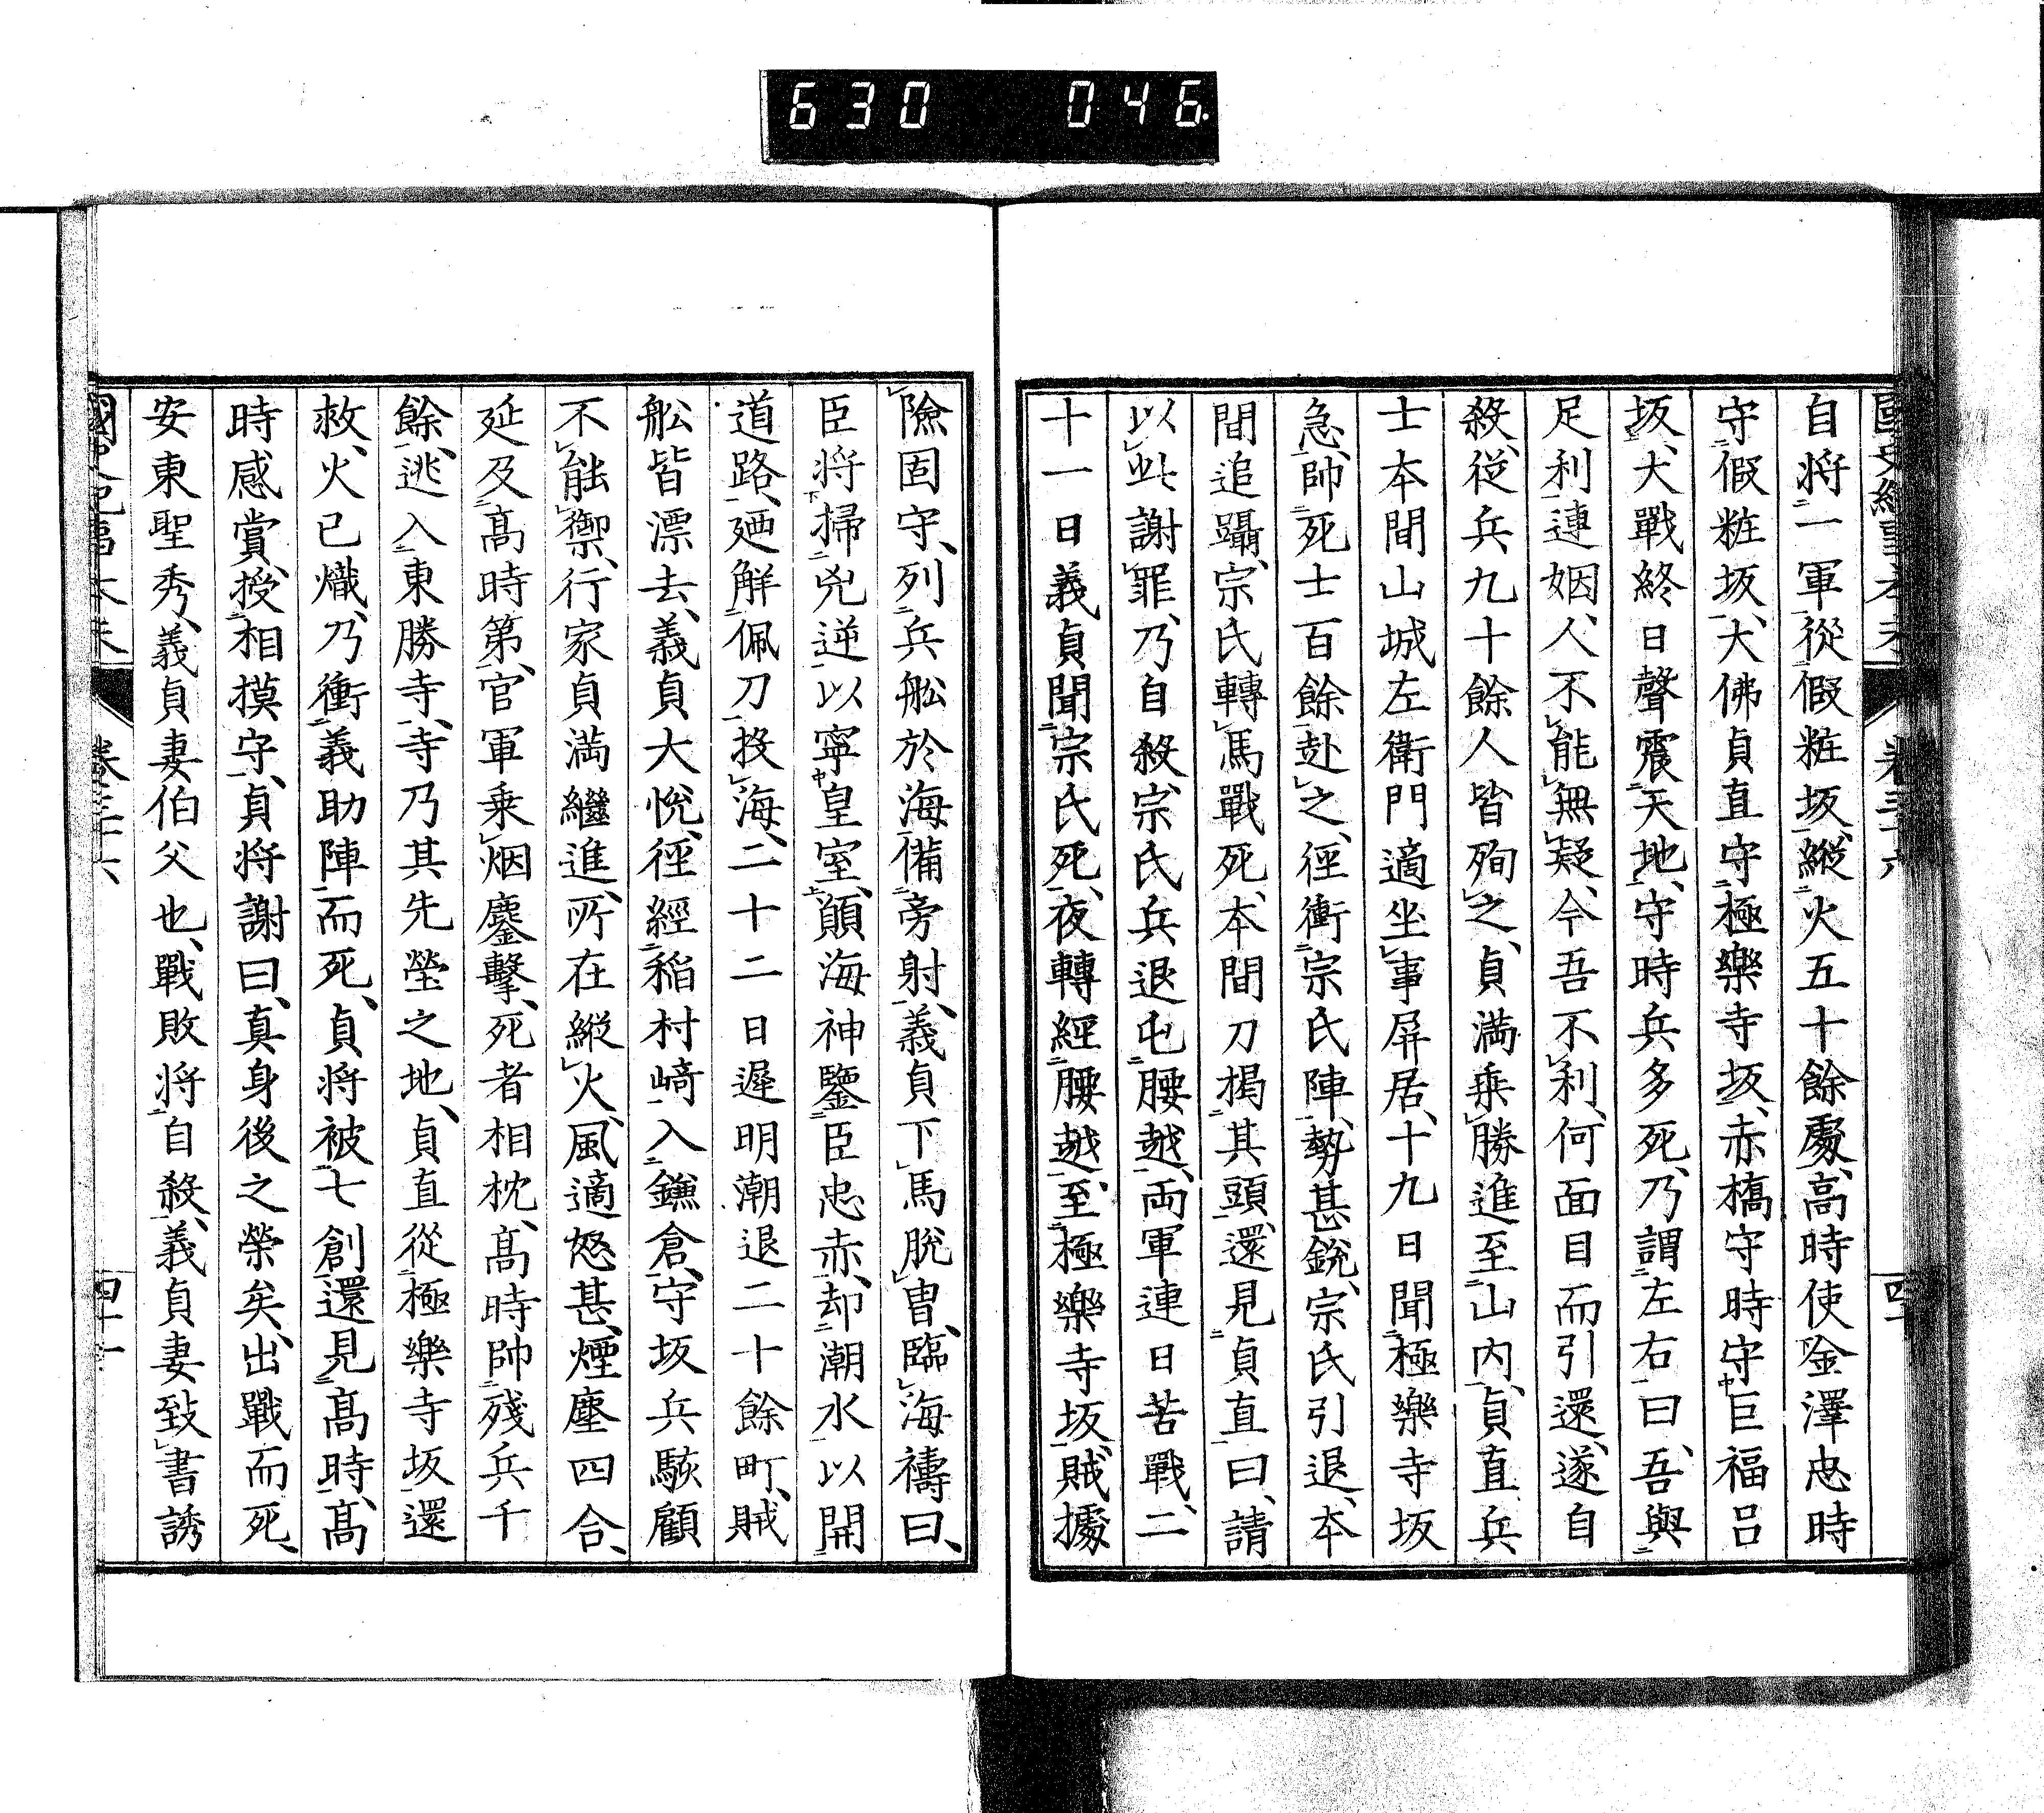 630 046
自将一軍從假粧坂縱火五十餘處、高時使金澤忠時
守假粧坂、大佛貞直守極樂寺坂、赤橋守時守巨福呂
坂、大戰終日聲震天地、守時兵多死、乃謂左右曰、吾與
足利連姻、人不能無疑、今吾不利、何面目而引還、遂自
殺、從兵九十餘人皆殉之、貞満乗勝進至山内、貞直兵
士本間山城左衛門適坐事屏居、十九日聞極樂寺坂
急、帥死士百餘赴之、徑衝宗氏陣、勢甚鋭、宗氏引退、本
間追躡、宗氏轉馬戰死、本間刀揭其頭、還見貞直曰、請
以此謝罪、乃自殺、宗氏兵退屯腰越、両軍連日苦戰、二
十一日義貞聞宗氏死、夜轉經腰越、至極樂寺坂、賊據
險固守、列兵舩於海備旁射、義貞下馬脱冑、臨海禱曰、
臣将掃兇逆以寧皇室、願海神鑒臣忠赤、却潮水以開
道路、廼解佩刀投海、二十二日遲明潮退二十餘町、賊
舩皆漂去、義貞大悅、徑經稲村﨑入鎌倉、守坂兵駭顧
不能禦、行家貞満繼進、所在縱火、風適怒甚、煙塵四合、
延及高時第、官軍乗烟鏖擊、死者相枕、高時帥殘兵千
餘、逃入東勝寺、寺乃其先塋之地、貞直從極樂寺坂還
救、火已熾、乃衝義助陣而死、貞将被七創還見高時、高
時感賞、授相摸守、貞将謝曰、真身後之榮矣、出戰而死、
安東聖秀、義貞妻伯父也、戰敗将自殺、義貞妻致書誘
國史紀事本末 卷三十六 四十一